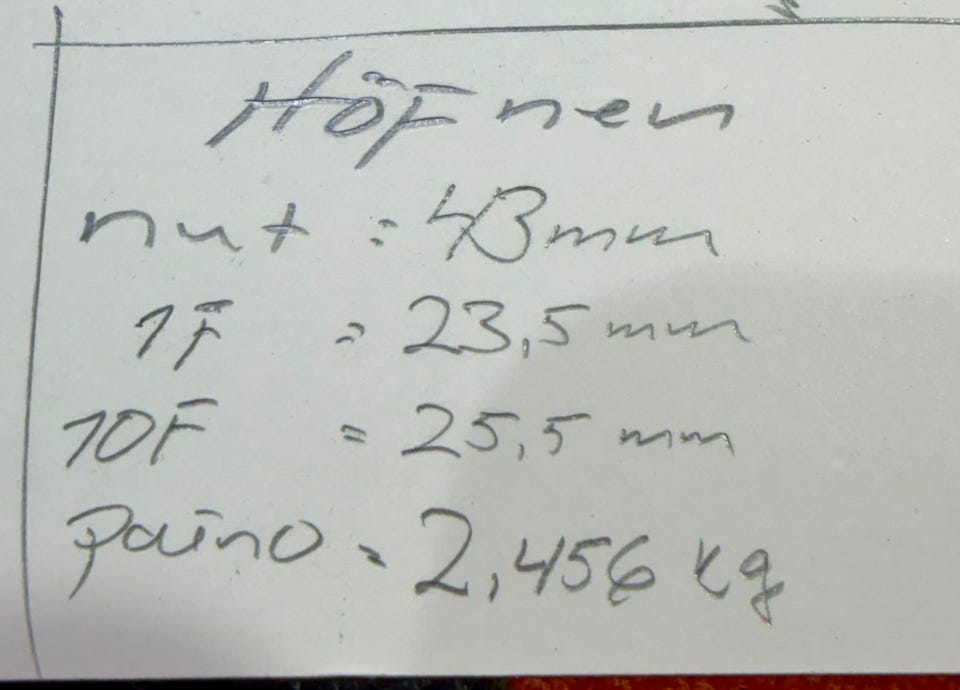 HÖFner
nut = 43mm
1F = 23,5 mm
10F = 25,5 mm
paino = 2,456 kg